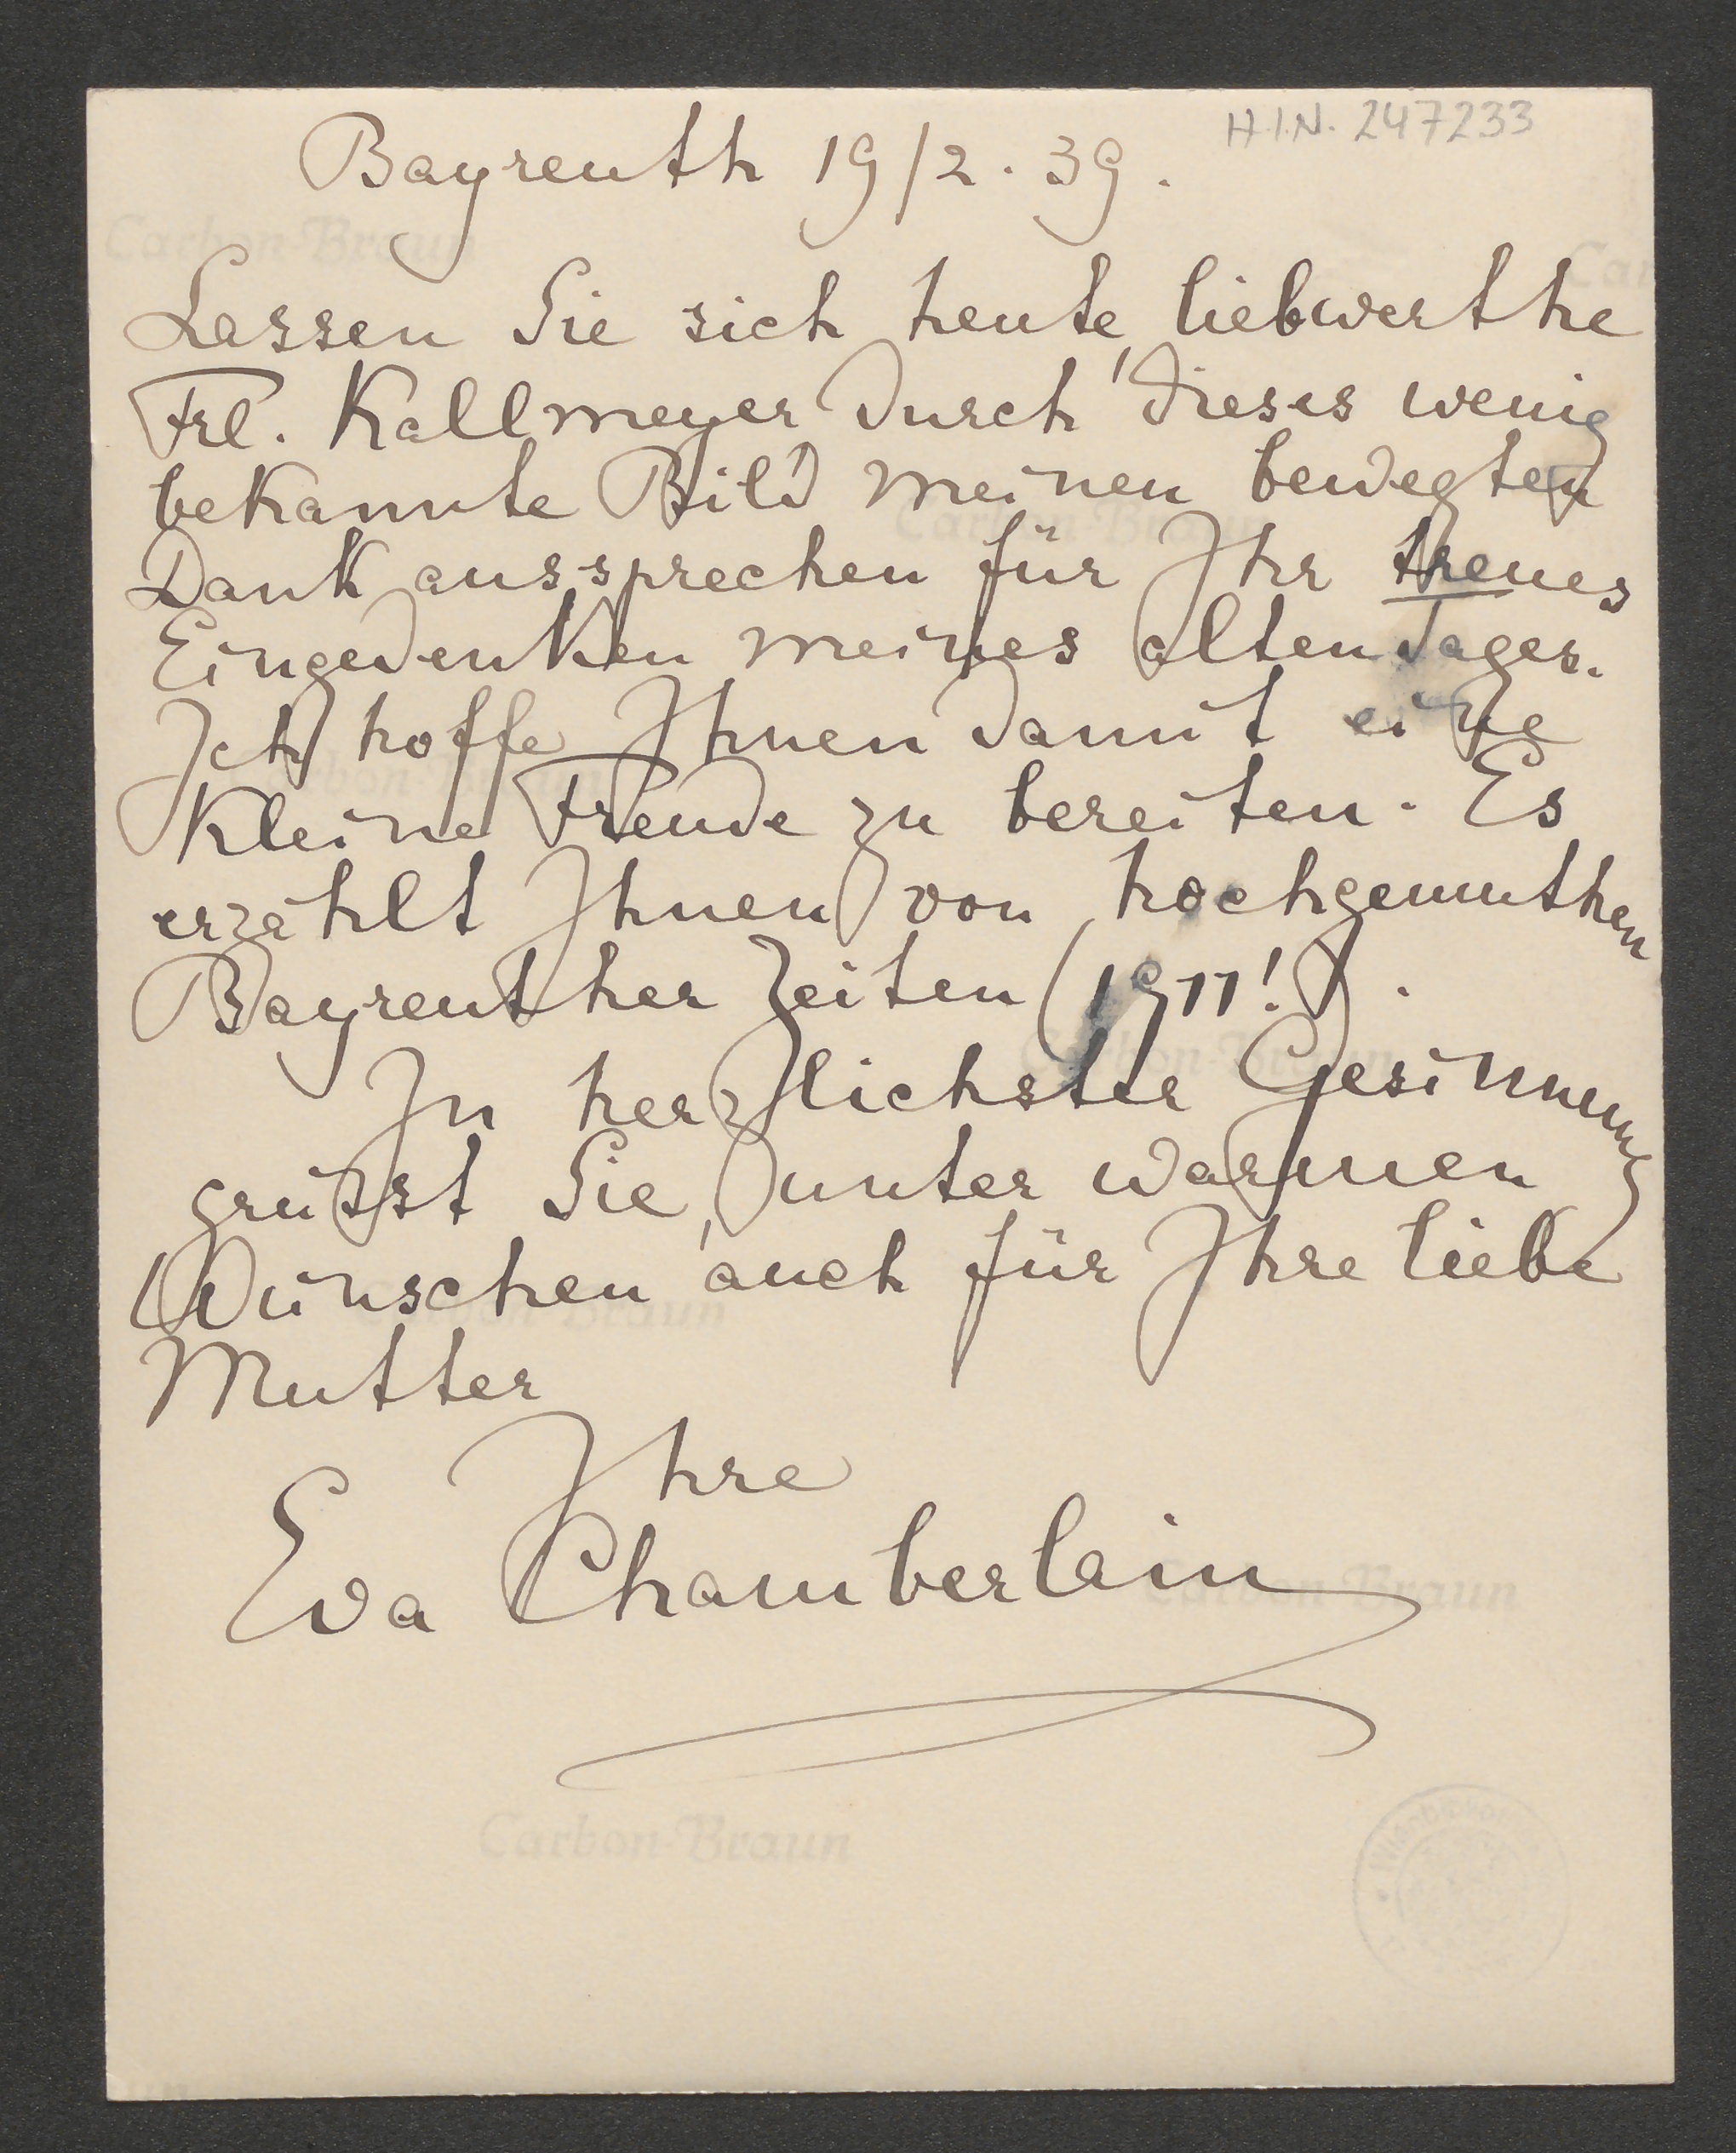 H.I.N. 247233
Bayreuth 19/2. 39.
Lassen Sie sich heute, liebwerthe
Frl. Kallmeyer durch dieses wenig
bekannte Bild meinen bewegten
Dank aussprechen für Ihr treues
Eingedenken meines alten Tages.
Ich hoffe Ihnen damit eine
kleine Freude zu bereiten. Es
erzählt Ihnen von hochgemuthen
Bayreuther Zeiten (1911!).
In herzlichster Gesinnung
grüsst Sie, unter warmen
Wünschen auch für Ihre liebe
Mutter
Ihre
Eva Chamberlain
Carbon-Braun
Carbon-Braun
Carbon-Braun
Carbon-Braun
Carbon-Braun
Carbon-Braun
Carbon-Braun